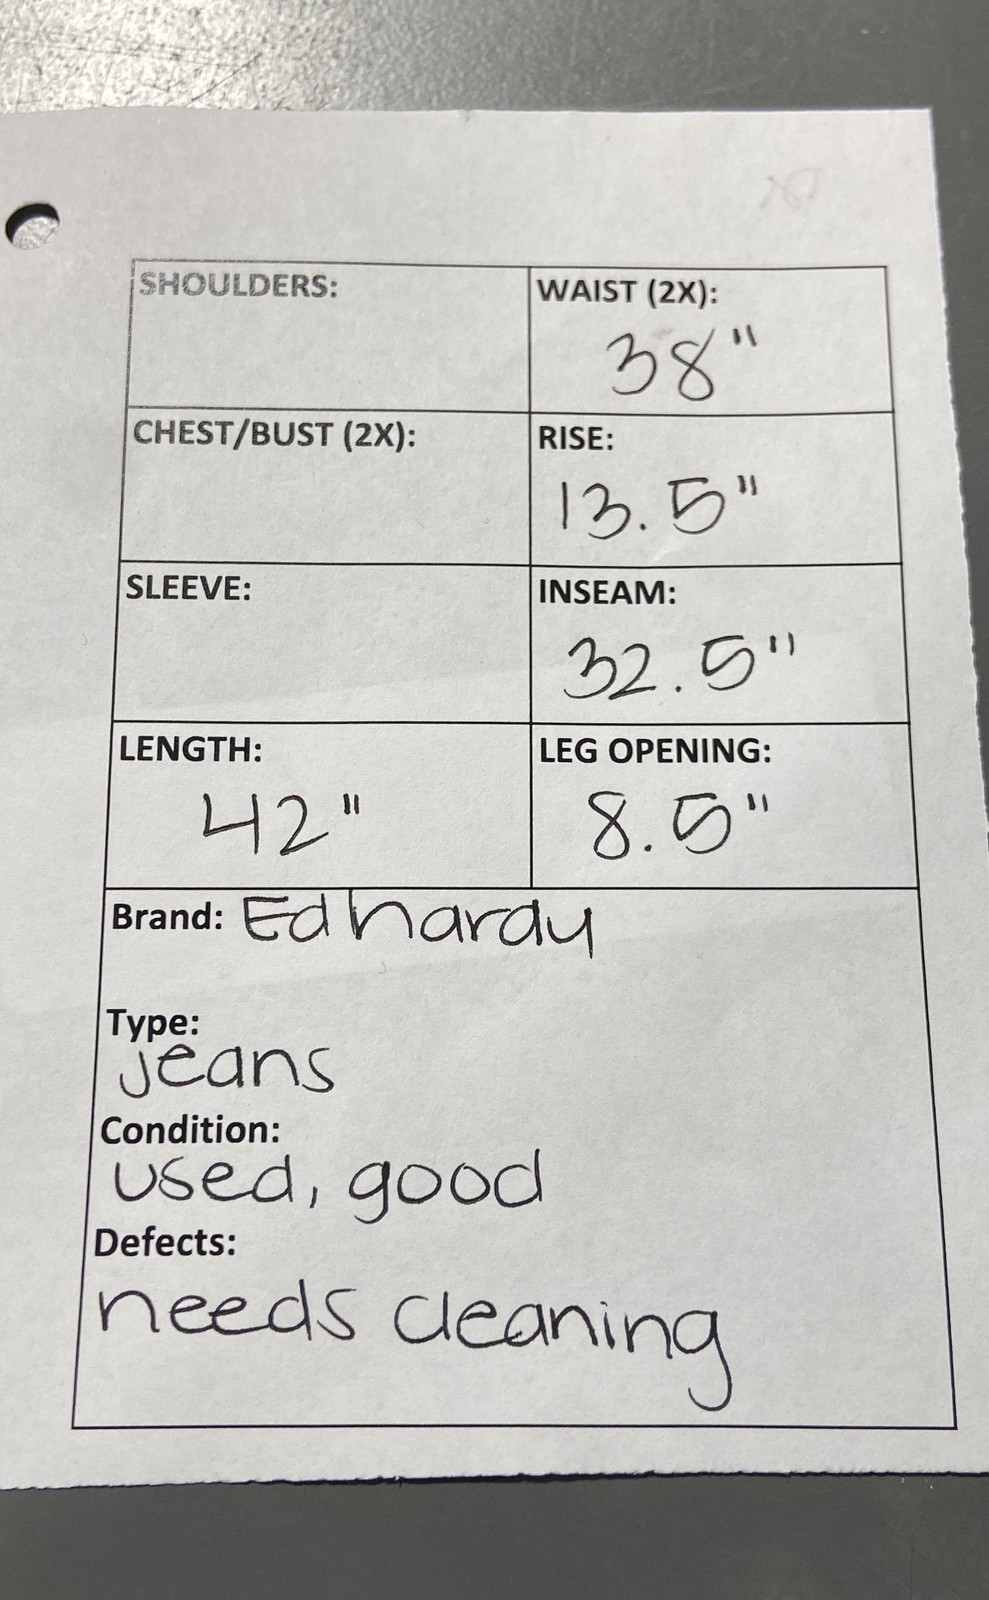 SHOULDERS:
WAIST (2X):
38"
CHEST/BUST (2X):
RISE:
13.5"
SLEEVE:
INSEAM:
32.5"
LENGTH:
42"
LEG OPENING:
8.5"
Brand: Ed hardy
Type:
jeans
Condition:
used, good
Defects:
needs cleaning